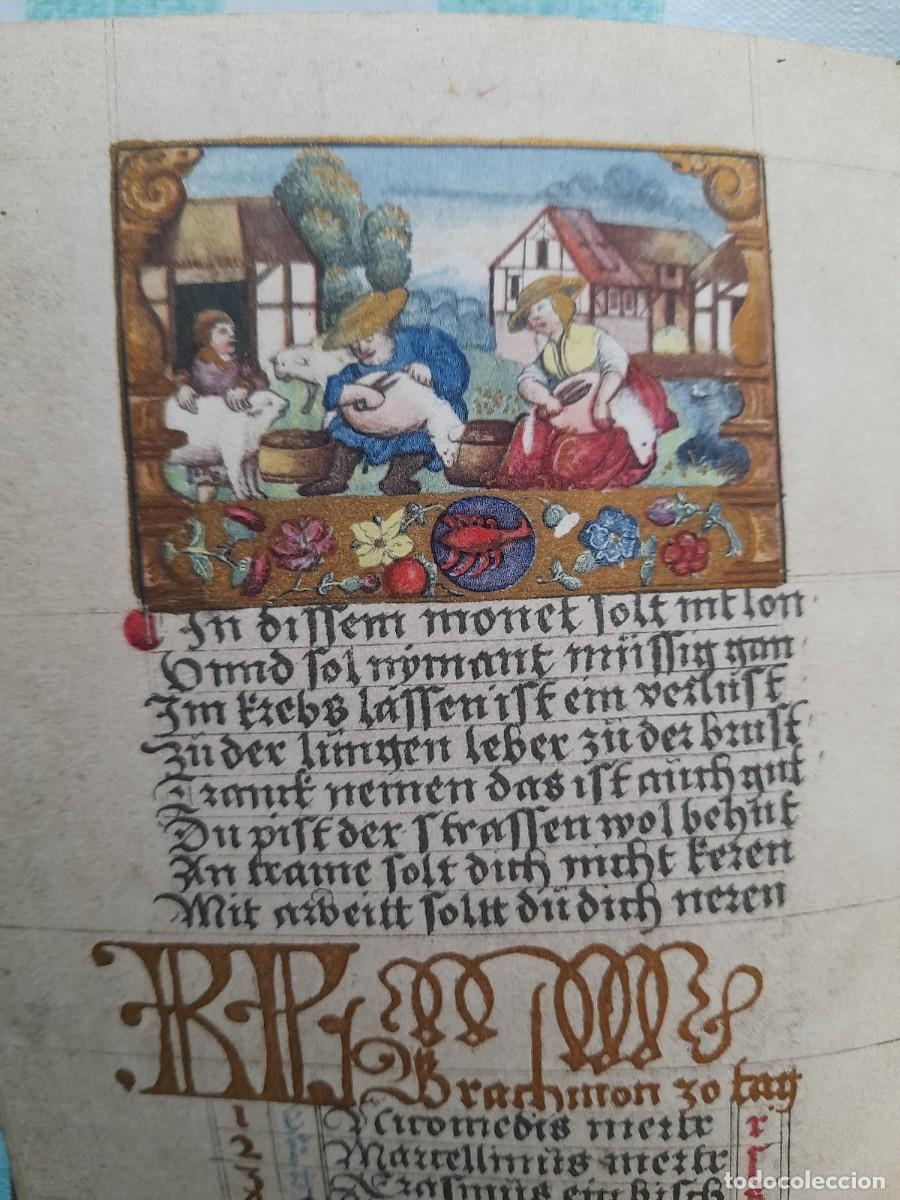 In dissem monet solt nit lon
Vnnd sol nymant müssig gan
Im krebs lassen ist ein verlust
Zü der lungen leber zü der brust
Tranck nemen das ist auch gut
Du pist der strassen wol behüt
An traine solt dich nicht keren
Mit arbeitt soltt dü dich neren
KL
Brachmon 30 tag
1 Nicomedis mertr r
2 Marcellinus mertr s
3 Erasmus ein bisch
todocoleccion